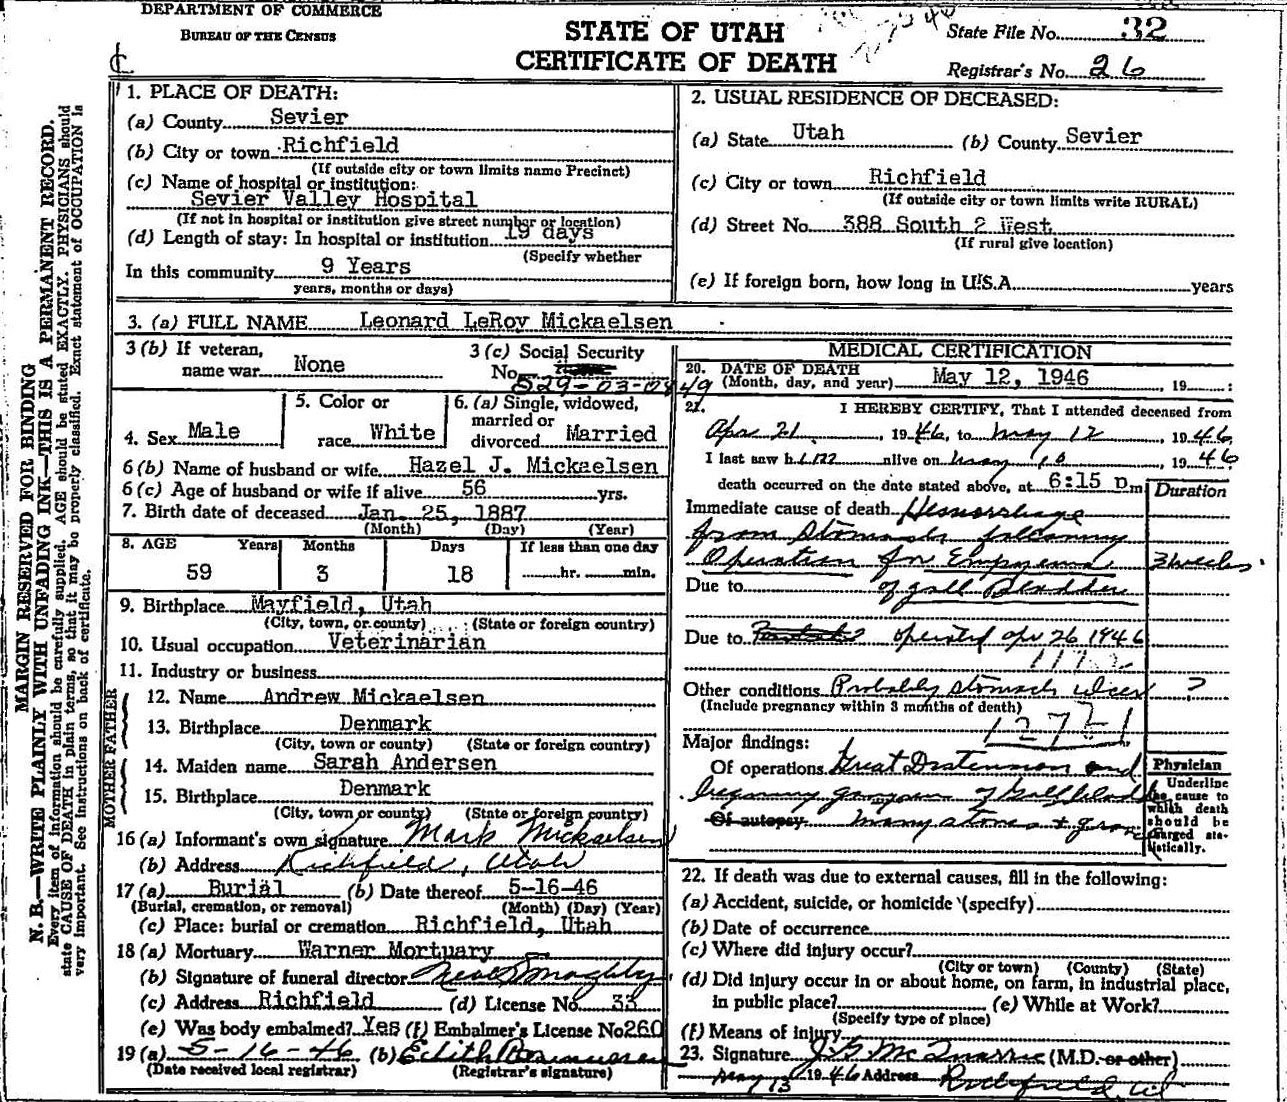 DEPARTMENT OF COMMERCE
BUREAU OF THE CENSUS
STATE OF UTAH
CERTIFICATE OF DEATH
State File No. 32
Registrar's No. 26
MARGIN RESERVED FOR BINDING
N. B.—WRITE PLAINLY WITH UNFADING INK—THIS IS A PERMANENT RECORD.
Every item of information should be carefully supplied. AGE should be stated EXACTLY. PHYSICIANS should
state CAUSE OF DEATH in plain terms, so that it may be properly classified. Exact statement of OCCUPATION is
very important. See instructions on back of certificate.
1. PLACE OF DEATH:
(a) County Sevier
(b) City or town Richfield
(If outside city or town limits name Precinct)
(c) Name of hospital or institution:
Sevier Valley Hospital
(If not in hospital or institution give street number or location)
(d) Length of stay: In hospital or institution 19 days
(Specify whether
In this community 9 Years
years, months or days)
2. USUAL RESIDENCE OF DECEASED:
(a) State Utah (b) County Sevier
(c) City or town Richfield
(If outside city or town limits write RURAL)
(d) Street No. 388 South 2 West
(If rural give location)
(e) If foreign born, how long in U.S.A. years
3. (a) FULL NAME Leonard LeRoy Mickaelsen
3 (b) If veteran, name war None
3 (c) Social Security No. 529-03-0849
4. Sex Male
5. Color or race White
6. (a) Single, widowed, married or divorced Married
6 (b) Name of husband or wife Hazel J. Mickaelsen
6 (c) Age of husband or wife if alive 56 yrs.
7. Birth date of deceased Jan. 25, 1887
(Month) (Day) (Year)
8. AGE Years Months Days If less than one day
59 3 18 hr. min.
9. Birthplace Mayfield, Utah
(City, town, or county) (State or foreign country)
10. Usual occupation Veterinarian
11. Industry or business
FATHER
12. Name Andrew Mickaelsen
13. Birthplace Denmark
(City, town or county) (State or foreign country)
MOTHER
14. Maiden name Sarah Andersen
15. Birthplace Denmark
(City, town or county) (State or foreign country)
16 (a) Informant's own signature Mark Mickaelsen
(b) Address Richfield, Utah
17 (a) Burial (b) Date thereof 5-16-46
(Burial, cremation, or removal) (Month) (Day) (Year)
(c) Place: burial or cremation Richfield, Utah
18 (a) Mortuary Warner Mortuary
(b) Signature of funeral director
(c) Address Richfield (d) License No. 33
(e) Was body embalmed? Yes (f) Embalmer's License No 260
19 (a) 5-16-46 (b) Edith
(Date received local registrar) (Registrar's signature)
MEDICAL CERTIFICATION
20. DATE OF DEATH
(Month, day, and year) May 12, 1946, 19 :
21. I HEREBY CERTIFY, That I attended deceased from
Apr 21, 1946, to May 12, 1946,
I last saw him alive on May 10, 1946
death occurred on the date stated above, at 6:15 pm
Duration
Immediate cause of death Hemorrhage
from stomach following
Operation for Empyema 3 weeks
Due to of gall Bladder
Due to operated apr 26 1946
Other conditions Probably stomach ulcer ?
(Include pregnancy within 3 months of death)
127
Major findings:
Of operations Great Distension and
gangreen of Gall bladd
Of autopsy many stones +
Physician
Underline the cause to which death should be charged statistically.
22. If death was due to external causes, fill in the following:
(a) Accident, suicide, or homicide (specify)
(b) Date of occurrence
(c) Where did injury occur?
(City or town) (County) (State)
(d) Did injury occur in or about home, on farm, in industrial place,
in public place? (e) While at Work?
(Specify type of place)
(f) Means of injury
23. Signature J G McQuarrie (M.D. or other)
May 13 1946 Address Richfield, Ut